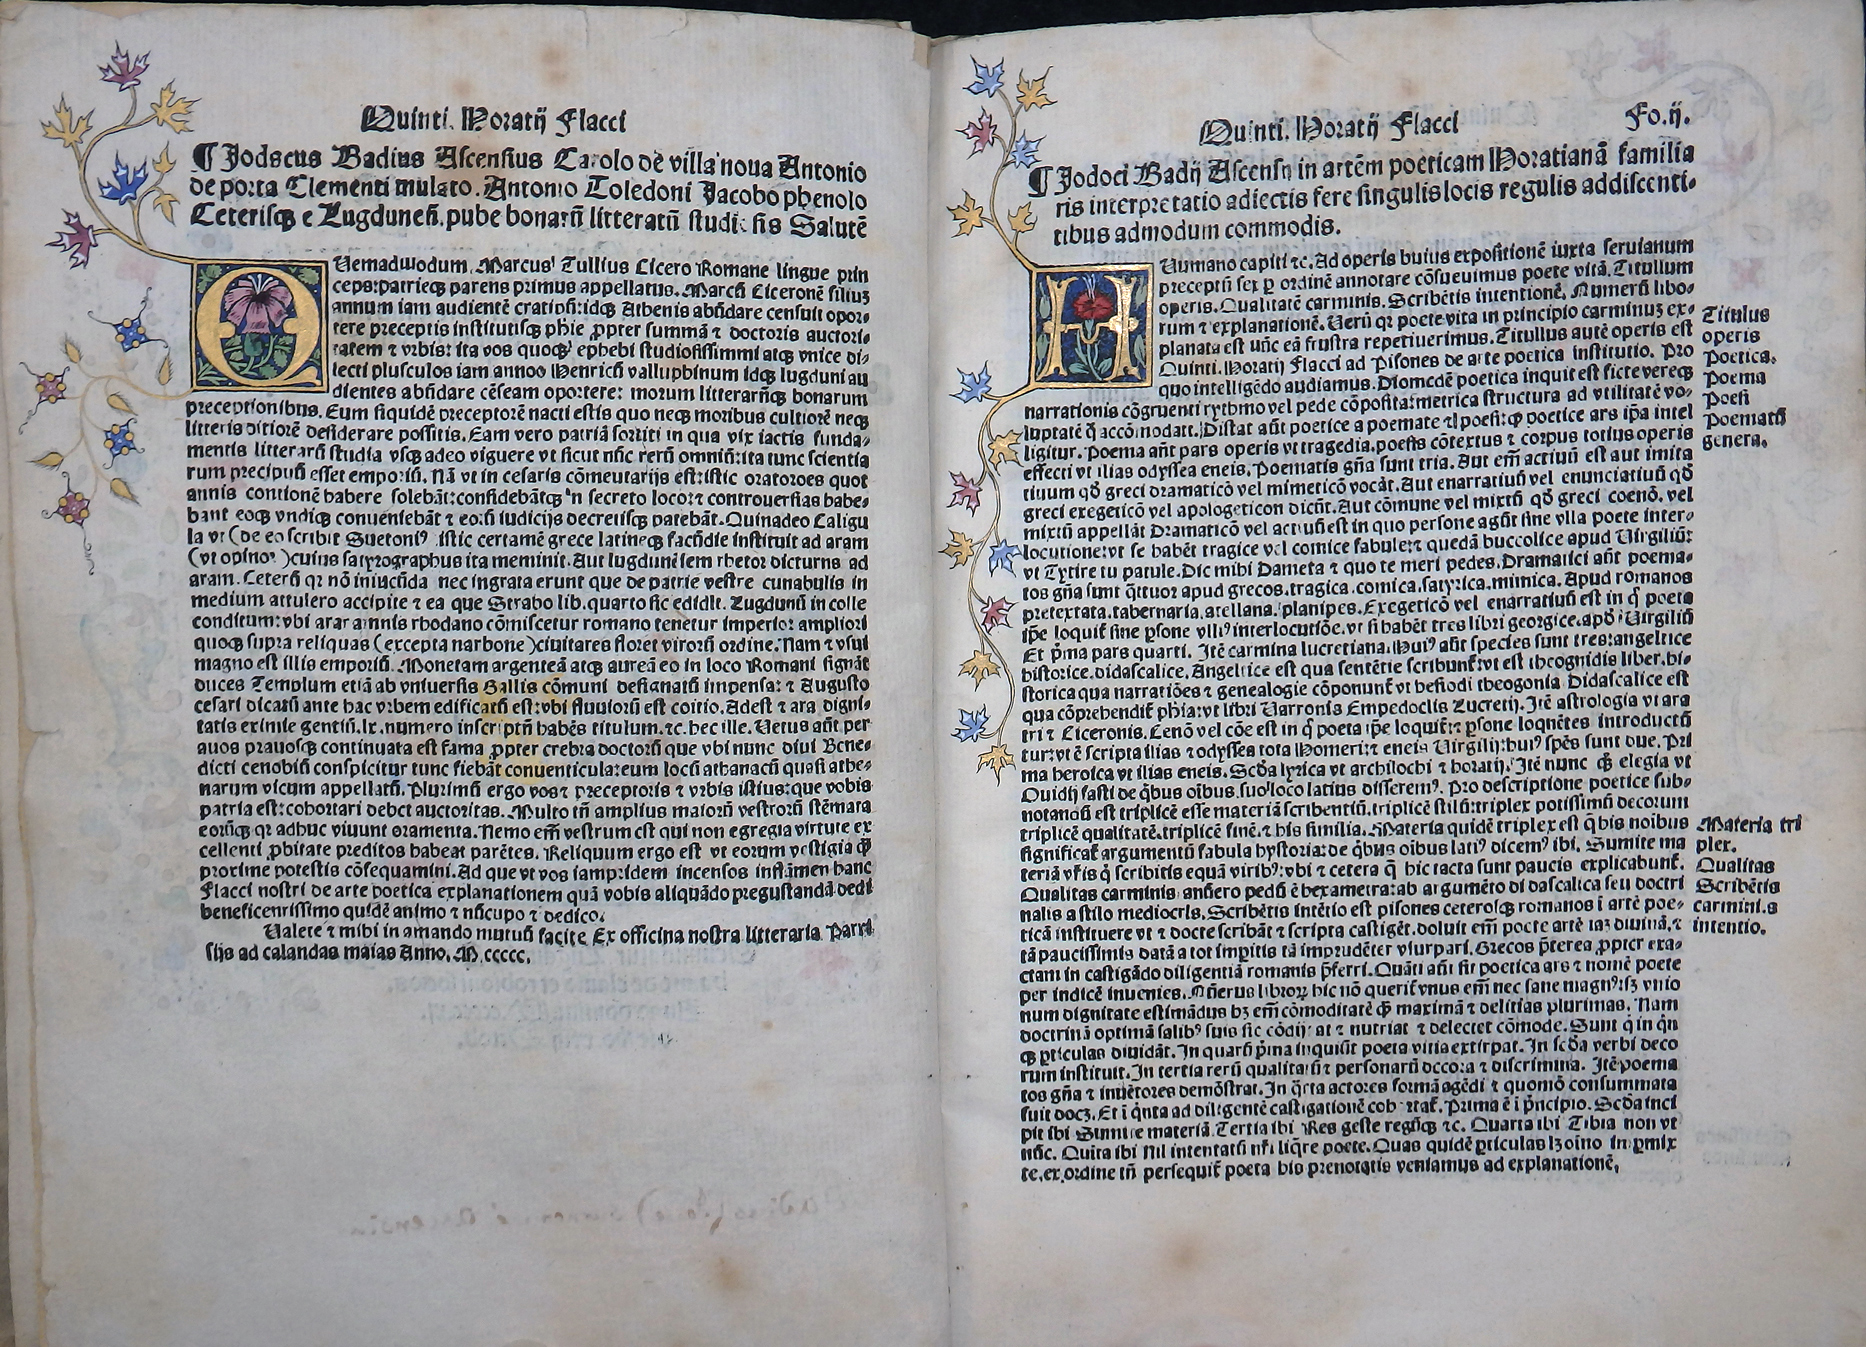 Quinti. Horatij Flacci
¶ Jodocus Badius Ascensius Carolo de villa noua Antonio
de porta Clementi mulato. Antonio Toledoni Jacobo phenolo
Ceterisqȝ e Lugduneñ. pube bonarū litteratū studiosis Salutē
Uemadmodum Marcus Tullius Cicero Romane lingue prin
ceps: patrieqȝ parens primus appellatus. Marcū Ciceronē filiuȝ
annum iam audientē cratippū: idqȝ Athenis abūdare censuit opor-
tere preceptis institutisqȝ phie ꝓpter summā ⁊ doctoris auctori-
tatem ⁊ vrbis: ita vos quoqȝ ephebi studiosissimi atqȝ vnice di-
lecti plusculos iam annos Henricū vallupbinum idqȝ lugduni au
dientes abūdare cēseam oportere: morum litterarūqȝ bonarum
preceptionibus. Eum siquidē preceptorē nacti estis quo neqȝ moribus cultiorē neqȝ
litteris ditiorē desiderare possitis. Eam vero patriā sortiti in qua vix iactis funda-
mentis litterarū studia vsqȝ adeo viguere vt sicut nūc rerū omniū: ita tunc scientia
rum precipuū esset emporiū. Nā vt in cesaris cōmeutarijs est: istic oratores quot
annis contionē habere solebāt: considebātqȝ in secreto loco: ⁊ controuersias habe-
bant eoqȝ vndiqȝ conueniebāt ⁊ eorū iudicijs decretisqȝ patebāt. Quinadeo Caligu
la vt (de eo scribit Suetoniꝰ istic certamē grece latineqȝ facūdie instituit ad aram
(vt opinor) cuius satyrographus ita meminit. Aut lugdunēsem rhetor dicturus ad
aram. Ceterū qꝛ nō iniucūda nec ingrata erunt que de patrie vestre cunabulis in
medium attulero accipite ⁊ ea que Strabo lib. quarto sic edidit. Lugdunū in colle
conditum: vbi arar amnis rhodano cōmiscetur romano tenetur imperio: ampliori
quoqȝ supra reliquas (excepta narbone) ciuitates floret virorū ordine. Nam ⁊ vsui
magno est illis emporiū. Monetam argenteā atqȝ aureā eo in loco Romani signāt
duces Templum etiā ab vniuersis Gallis cōmuni designatū impensa: ⁊ Augusto
cesari dicatū ante hac vrbem edificatū est: vbi fluuiorū est coitio. Adest ⁊ ara digni-
tatis eximie gentiū. lx. numero inscriptū habēs titulum. ⁊c. hec ille. Uetus aūt per
auos prauosqȝ continuata est fama ꝓpter crebra doctorū que vbi nunc diui Bene-
dicti cenobiū conspicitur tunc fiebāt conuenticula: eum locū athanacū quasi athe-
narum vicum appellatū. Plurimū ergo vos ⁊ preceptoris ⁊ vrbis istius: que vobis
patria est: cohortari debet auctoritas. Multo tñ amplius maiorū vestrorū stēmara
eorūqȝ qꝛ adhuc viuunt oramenta. Nemo em̄ vestrum est qui non egregia virtute ex
cellenti ꝓbitate preditos habeat parētes. Reliquum ergo est vt eorum vestigia qȝ
proxime potestis cōsequamini. Ad que vt vos iampridem incensos inflāmen hanc
Flacci nostri de arte poetica explanationem quā vobis aliquādo pregustandā dedi
beneficentissimo quidē animo ⁊ nūcupo ⁊ dedico.
Ualete ⁊ mihi in amando mutuū facite Ex officina nostra litteraria Parrı
sijs ad calandas maias Anno. M.ccccc.
Quinti. Horatij Flacci
Fo. ij.
¶ Jodoci Badij Ascensij in artēm poeticam Horatianā familia
ris interpretatio adiectis fere singulis locis regulis addiscenti-
tibus admodum commodis.
Humano capiti ⁊c. Ad operis huius expositionē iuxta seruianum
preceptū sex ꝑ ordinē annotare cōsueuimus poete vitā. Titullum
operis. Qualitatē carminis. Scribētis intentionē. Numerū libo-
rum ⁊ explanationē. Uerū qꝛ poete vita in principio carminuȝ ex-
planata est ūc eā frustra repetiuerimus. Titullus autē operis est
Quinti. Horatij Flacci ad Pisones de arte poetica institutio. Pro
quo intelligēdo audiamus. Diomedē poetica inquit est ficte vereqȝ
narrationis cōgruenti rytbmo vel pede cōposita: metrica structura ad vtilitatē vo-
luptatē qȝ accōmodatt. Distat aūt poetice a poemate ⁊ poesi: qꝛ poetice ars ip̄a intel
ligitur. Poema aūt pars operis vt tragedia. poesis cōtextus ⁊ corpus totius operis
effecti vt ilias odyssea eneis. Poematis gn̄a sunt tria. Aut em̄ actiuū est aut imita
tiuum qd̄ greci dramaticō vel mimeticō vocāt. Aut enarratiuū vel enunciatiuū qd̄
greci exegeticō vel apologeticon dicūt. Aut cōmune vel mixtū qd̄ greci coenō. vel
mixtū appellāt Dramaticō vel actiuū est in quo persone agūt sine vlla poete inter-
locutione: vt se habēt tragice vel comice fabule: ⁊ quedā buccolice apud Uirgiliū:
vt Tytire tu patule. Dic mihi Dameta ⁊ quo te meri pedes. Dramatici aūt poema-
tos gn̄a sunt q̄ttuor apud grecos. tragica. comica. satyrica. mimica. Apud romanos
pretextata. tabernaria. atellana. planipes. Exegeticō vel enarratiuū est in q̄ poeta
ip̄e loquit̄ sine ꝑsone vlliꝰ interlocutiōe. vt si habēt tres libri georgice. apd̄ Uirgiliū
Et p̄ma pars quarti. Itē carmina lucretiana. Huiꝰ aūt species sunt tres: angeltice
historice. didascalice. Angeltice est qua sentētie scribunt̄: vt est theognidis liber. hi-
storica qua narratiōes ⁊ genealogie cōponunt̄ vt hesiodi theogonia Didascalice est
qua cōprehendit̄ phia: vt libri Uarronis Empedoclis Lucretij. Itē astrologia vt ara
tri ⁊ Ciceronis. Cenō vel cōe est in q̄ poeta ip̄e loquit̄: ⁊ ꝑsone loqn̄tes introductū
tur: vt ē scripta ilias ⁊ odysses tota Homeri: ⁊ eneis Uirgilij: huiꝰ spēs sunt due. Pri
ma heroica vt ilias eneis. Scd̄a lyrica vt archilochi ⁊ horatij. Itē nunc qȝ elegia vt
Ouidij fasti de q̄bus oibus suo loco latius disseremꝰ. Pro descriptione poetice sub-
notandū est triplicē esse materiā scribentiū. triplicē stilū: triplex potissimū decorum
triplicē qualitatē. triplicē finē. ⁊ his similia. Materia quidē triplex est q̄ bis noibus
significat̄ argumentū fabula hystoria: de q̄bus oibus latiꝰ dicemꝰ ibi. Sumite ma
teriā vr̄is q̄ scribitis equā viribꝰ: vbi ⁊ cetera q̄ hic tacta sunt paucis explicabunt̄.
Qualitas carminis: aūero pedū ē hexametra: ab argumēto didascalica seu doctri
nalis a stilo mediocris. Scribētis intētio est pisones ceterosqȝ romanos ī artē poe-
ticā instituere vt ⁊ docte scribāt ⁊ scripta castigēt. doluit em̄ poete artē iaȝ diuinā. ⁊
tā paucissimis datā a tot imp̄itis tā imprudēter vsurpari. Grecos p̄terea ꝓpter exa-
ctam in castigādo diligentiā romanis p̄ferri. Quāti aūt sit poetica ars ⁊ nomē poete
per indicē inuenies. Nūerus libroꝝ hic nō querit̄ vnus em̄ nec sane magnꝰ: sȝ vnio
num dignitate estimādus hȝ em̄ cōmoditatē qȝ maximā ⁊ delitias plurimas. Nam
doctrinā optimā salibꝰ suis sic cōdij: at ⁊ nutriat ⁊ delectet cōmode. Sunt q̄ in qn̄
qȝ ꝑticulas diuidāt. In quarū p̄ma inquiūt poeta vitia extirpat. In scd̄a verbi deco
rum instituit. In tertia rerū qualitatū ⁊ personarū decora ⁊ discrimina. Itē poema
tos gn̄a ⁊ inuētores demōstrat. In q̄rta actores formā agēdi ⁊ quomō consummata
fuit docȝ. Et ī q̄nta ad diligentē castigationē cohortat̄. Prima ē ī p̄ncipio. Scd̄a inci
pit ibi Sumite materiā. Tertia ibi Res geste regūqȝ ⁊c. Quarta ibi Tibia non vt
nūc. Quita ibi Nil intentatū nr̄i liq̄re poete. Quas quidē ꝑticulas lȝ oīno in ꝑmix
te. ex ordine tñ persequit̄ poeta his prenotatis veniamus ad explanationē.
Titulus
operis
Poetica.
Poema
Poesi
Poematū
genera.
Materia tri
plex.
Qualitas
Scribētis
carminis
intentio.